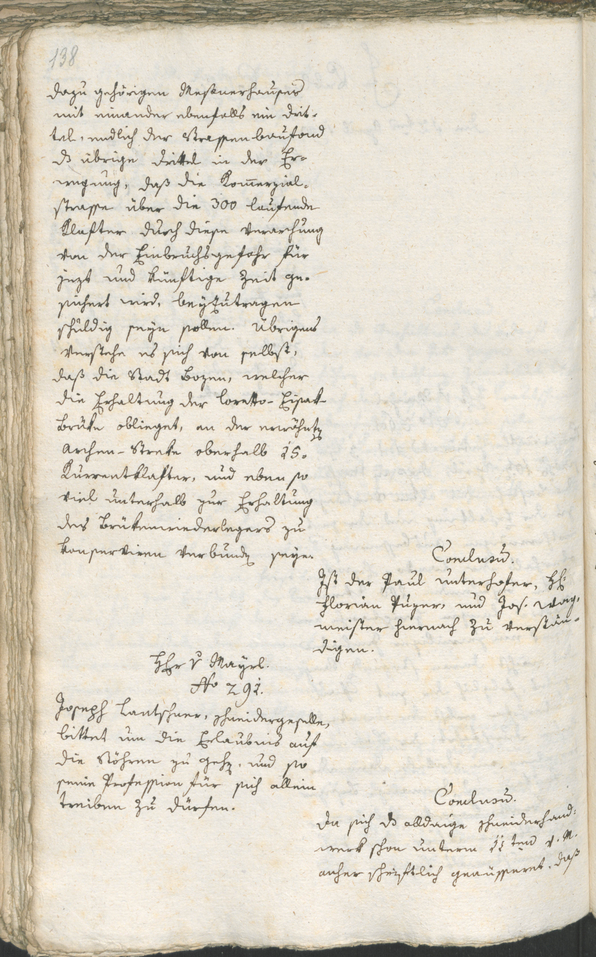 138
dazu gehörigen Meßnerhauses
mit einander ebenfalls ein drit-
tel, endlich der Strassenbaufond
ds übrige drittel in der Er-
wegung, daß die Komerzial-
strasse über die 300 laufende
Klafter durch diese Verarchung
von der Einbruchsgefahr für
jezt und künftige Zeit ge-
sichert wird, beyzutragen
schuldig seyn sollen. Übrigens
verstehe es sich von selbst,
daß die Stadt Bozen, welcher
die Erhaltung der Loretto-Eisak-
Brüke obliegt, an der erwähnten
Archen-Streke oberhalb 15.
Kurrentklafter, und eben so
viel unterhalb zur Erhaltung
des Brükenwiederlegers zu
konserviren verbunden seye.
Conclusum.
Ist der Paul Unterhofer, H:
Florian Püzer, und Jos. Wag-
meister hiernach zu verstän-
digen.
Hr v Mayrl.
No 291.
Joseph Lantschner, Schneidergeselle,
bittet um die Erlaubnis auf
die Stören zu gehen, und so
seine Profession für sich allein
treiben zu dürfen.
Conclusum.
Da sich ds alldaige Schneiderhand-
werk schon unterm 11ten v. M.
anher schriftlich geäusseret, daß